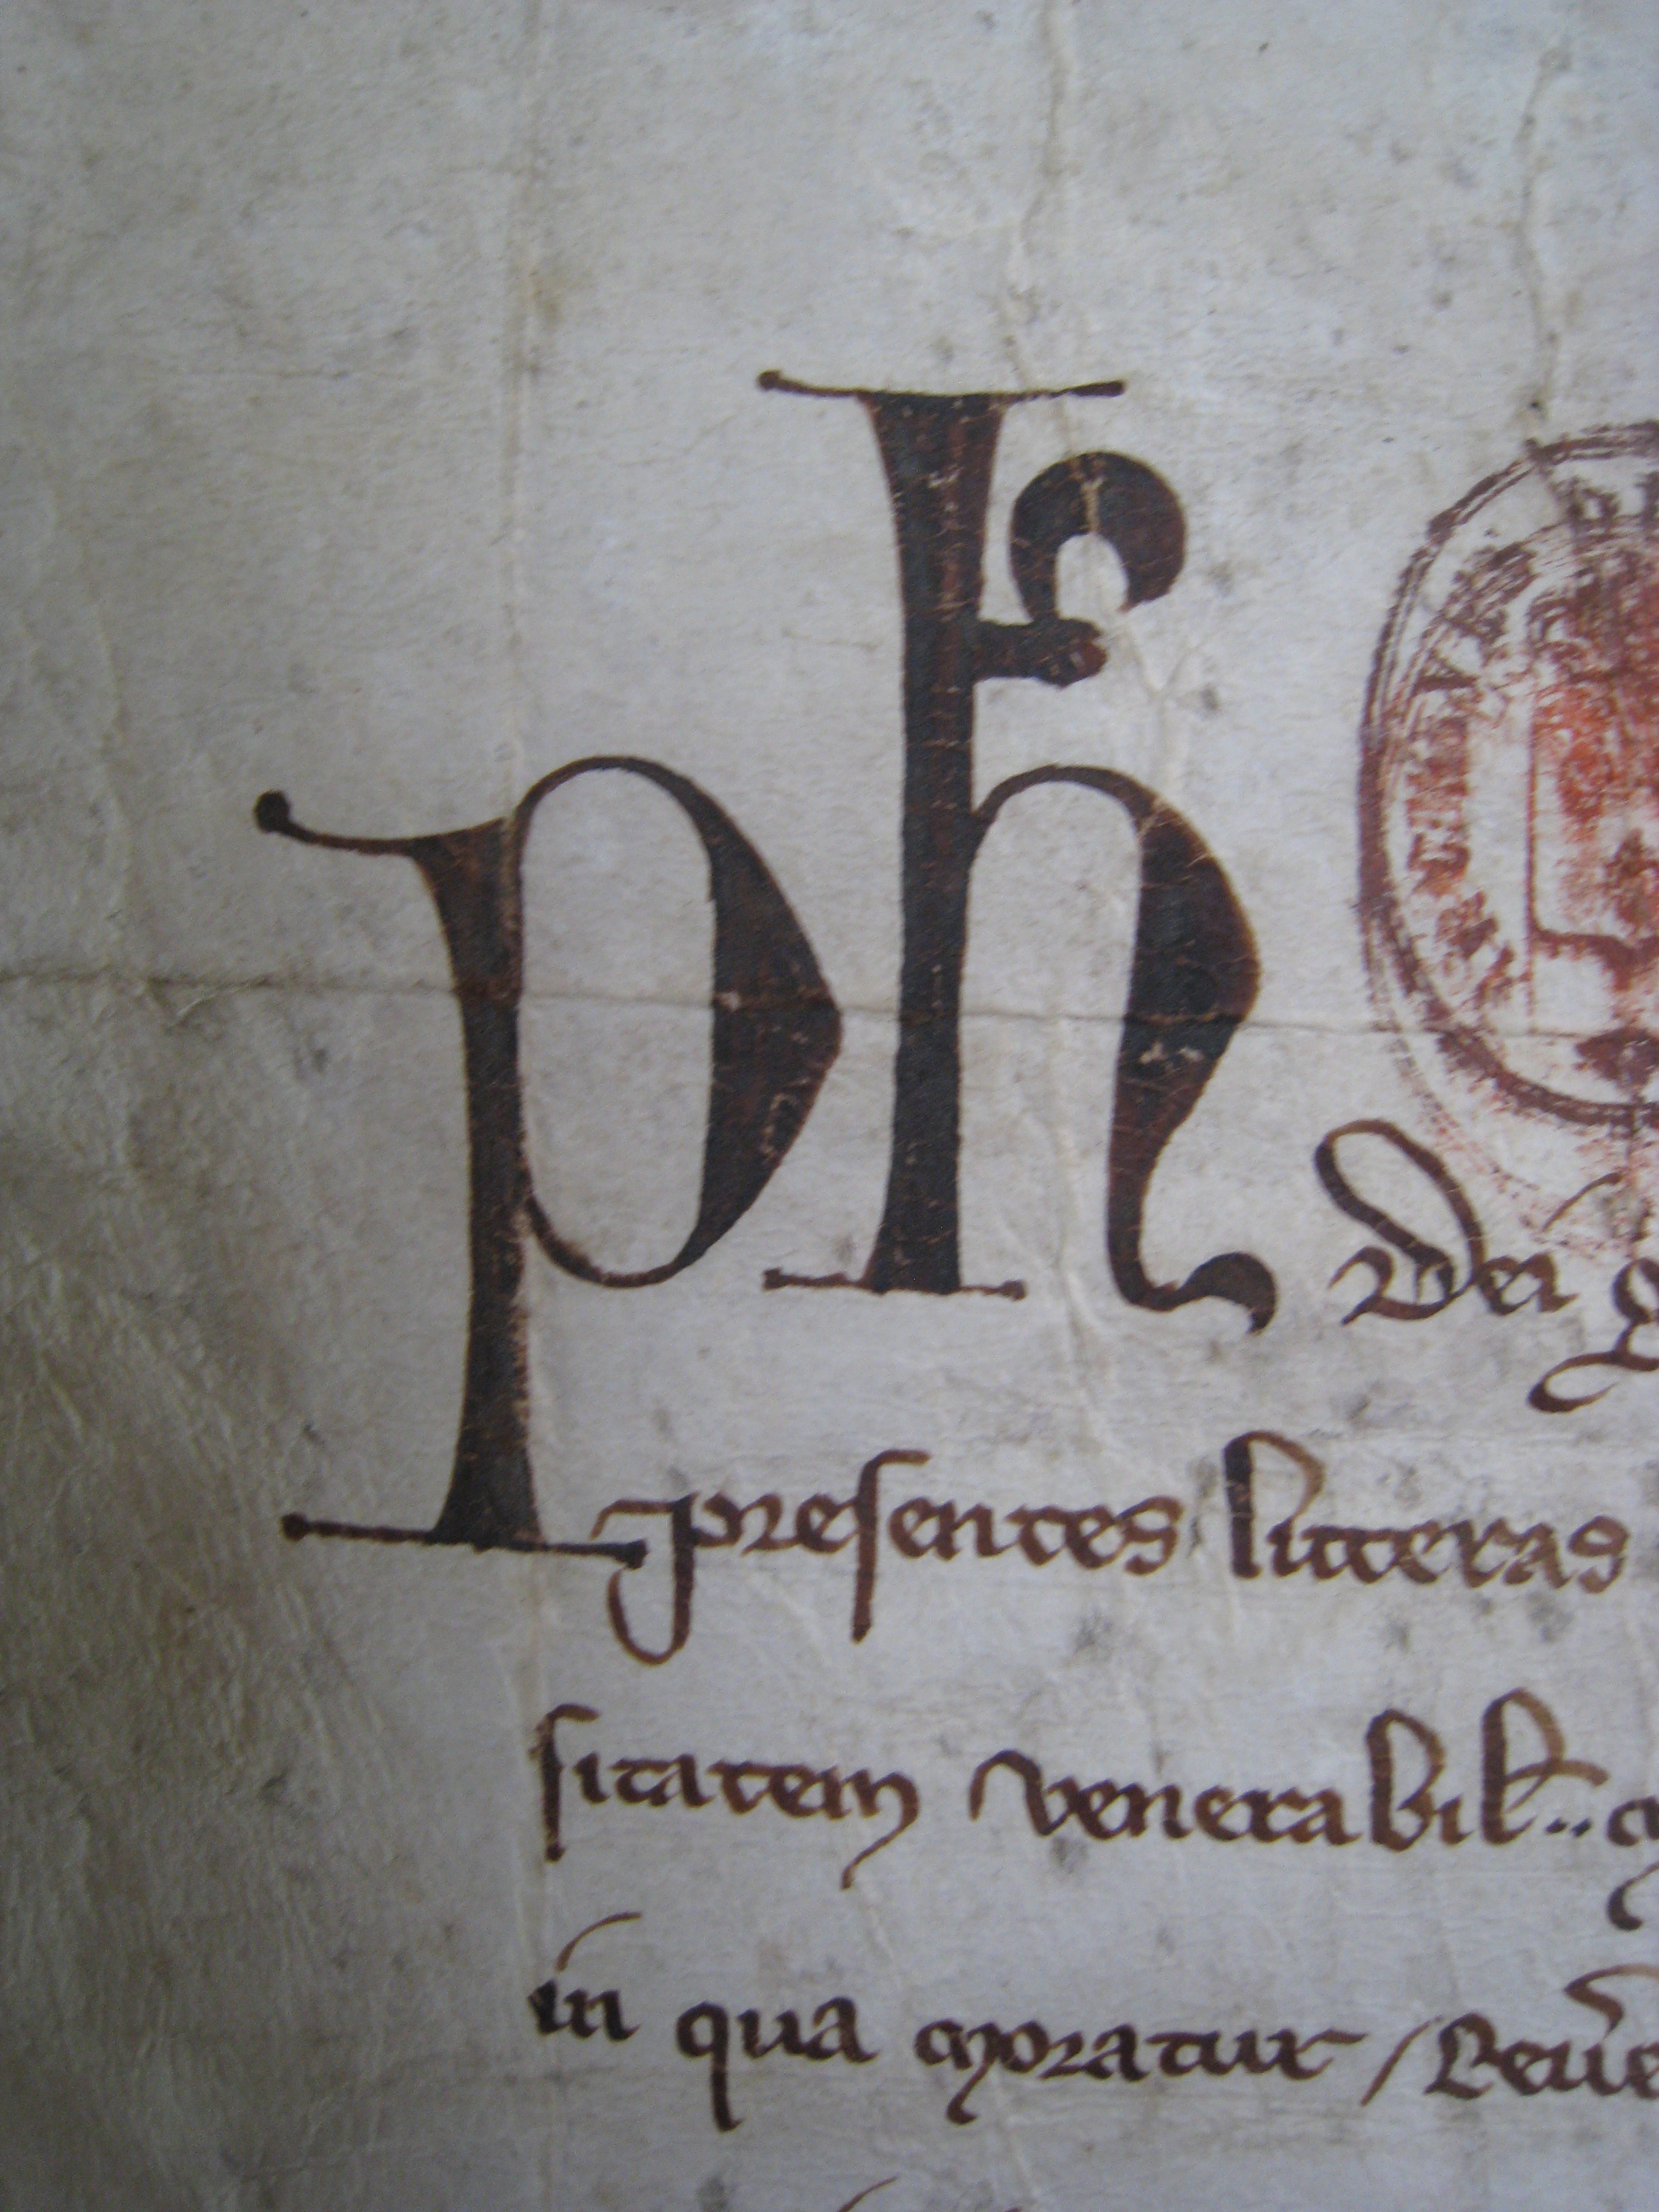 ph Dei g
presentes litteras
sitatem venerabil..
in qua moratur /